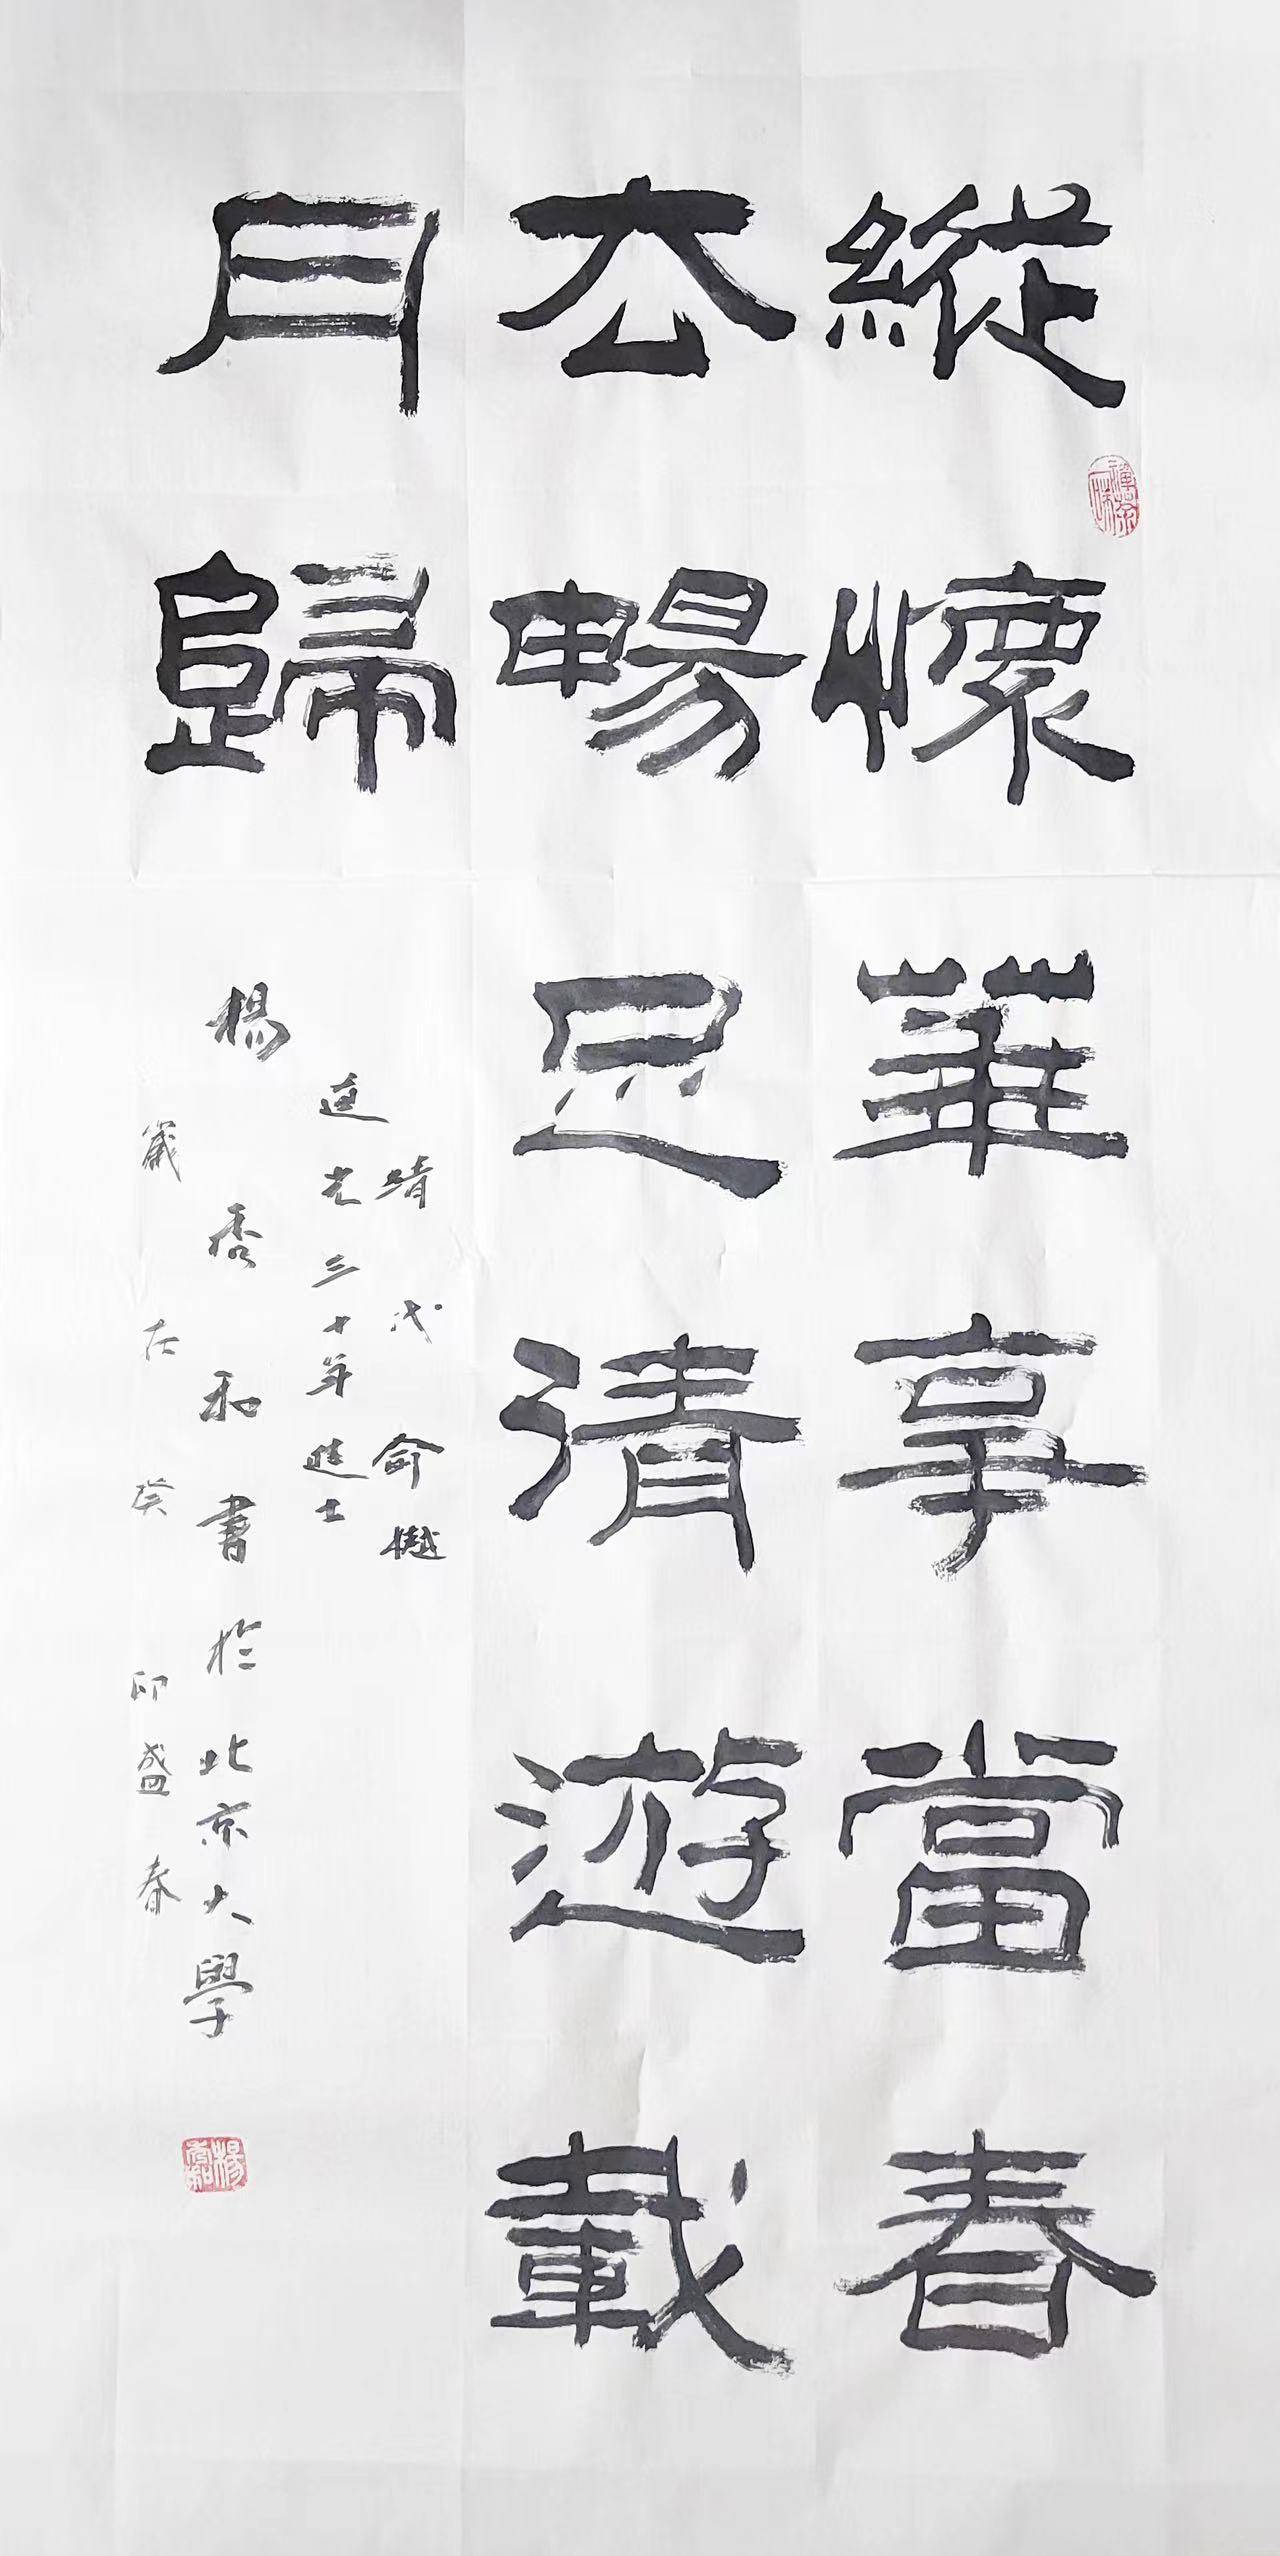 縱懷華享當春
去暢足清遊載
月歸
清代俞樾
道光三十年進士
楊秀和書於北京大學
歲在癸卯盛春
禪茶一味
楊秀和